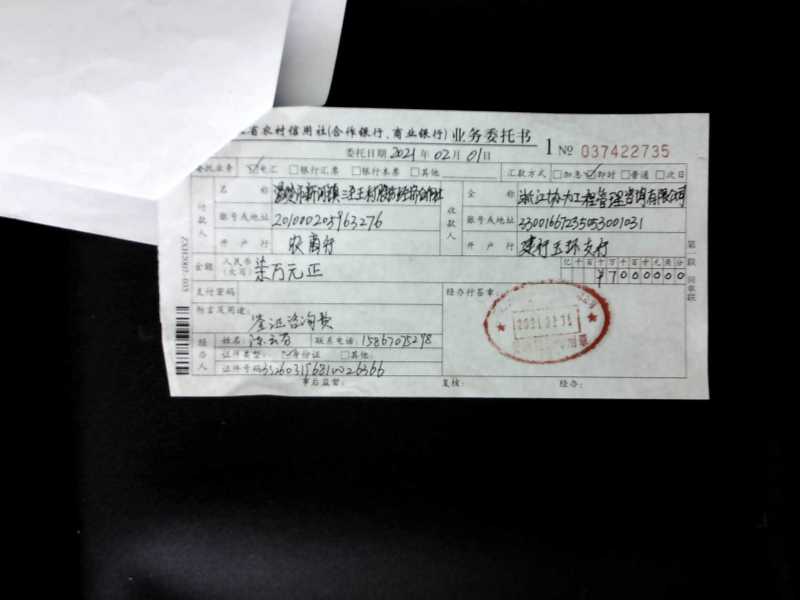 省农村信用社(合作银行、商业银行)业务委托书 1 № 037422735
委托日期 2021 年 02 月 01 日
委托业务 电汇 银行汇票 银行本票 其他 汇款方式 加急 即时 普通 次日
付款人 名称 温岭市新河镇三浃王村股份经济合作社 收款人 全称 浙江协力工程管理咨询有限公司
账号或地址 201000205963276 账号或地址 33001667235053001031
开户行 农商行 开户行 建行玉环支行
金额 人民币(大写) 柒万元正 亿千百十万千百十元角分 ¥7000000
支付密码 经办行签章
附言及用途: 鉴证咨询费
经办人 姓名 联系电话:
证件类型: 身份证 其他:
证件号码
事后监督: 复核: 经办:
第一联 回单联